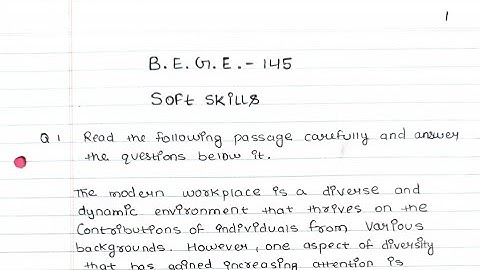 1
B.E.G.E.-145
Soft Skills
Q1 Read the following passage carefully and answer
the questions below it.
The modern workplace is a diverse and
dynamic environment that thrives on the
Contributions of individuals from various
backgrounds. However, one aspect of diversity
that has gained increasing attention is